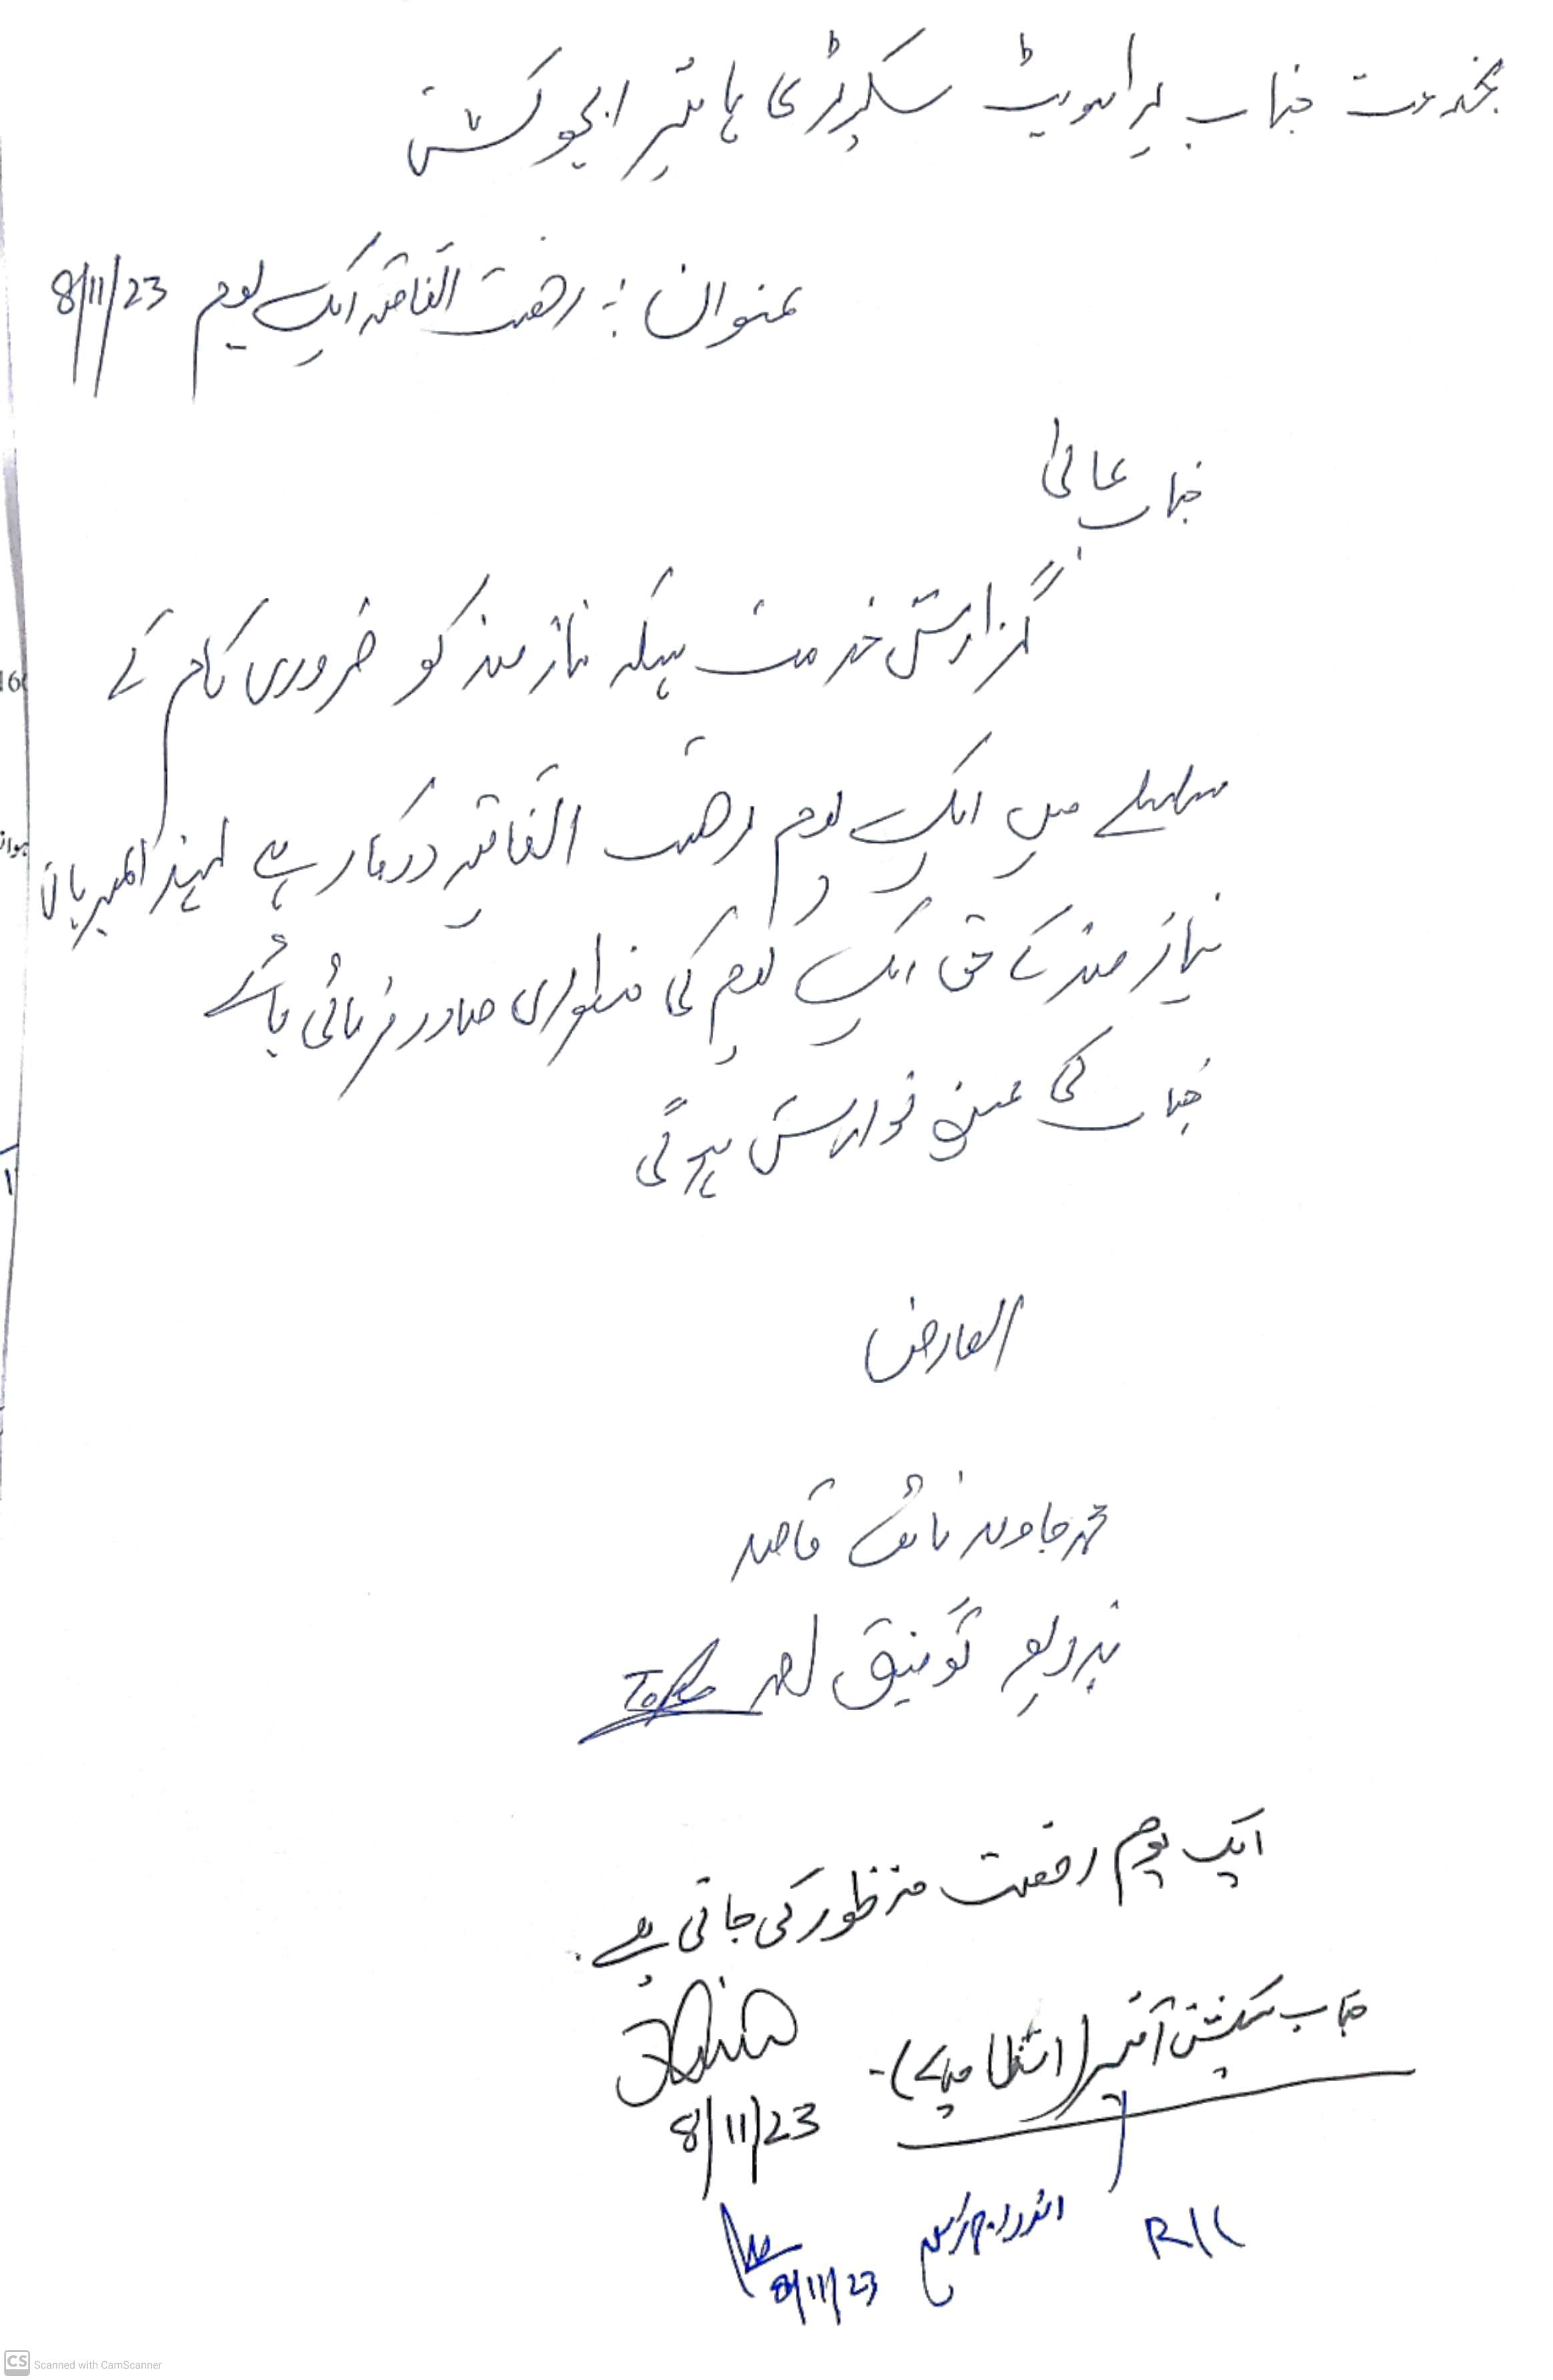 بخدمت جناب پرائیویٹ سیکرٹری ہائیر ایجوکیشن
عنوان :۔ رخصت اتفاقیہ ایک یوم 8/11/23
جناب عالی
گزارش خدمت ہیکہ نیاز مند کو ضروری کام کے
سلسلے میں ایک یوم رخصت اتفاقیہ درکار ہے لہذا المہربانی
نیاز مند کے حق ایک یوم کی منظوری صادر فرمائی جائے
جناب کی عین نوازش ہو گی
العارض
محمد جاوید نائب قاصد
بذریعہ توفیق احمد
ایک یوم رخصت منظور کی جاتی ہے۔
جناب سیکشن آفیسر (انتظامیہ)۔
8/11/23
اندراج کریں
8/11/23
CS Scanned with CamScanner